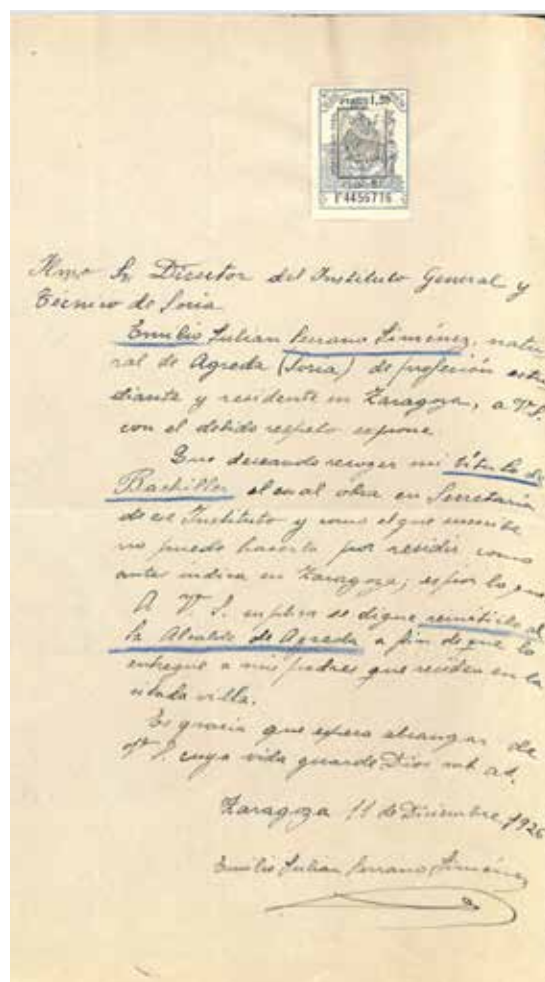 1,20
F4456716
Ilmo Sr. Director del Instituto General y
Tecnico de Soria
Emilio Julian Serrano Jiménez, natu
ral de Agreda (Soria) de profesión estu
diante y residente en Zaragoza, a V. S.
con el debido respeto expone
Que deseando recoger mi título de
Bachiller el cual obra en Secretaria
de ese Instituto y como el que suscribe
no puede hacerlo por residir como
antes indica en Zaragoza; es por lo que
A V. S. suplica se digne remitirlo al
Sr. Alcalde de Agreda a fin de que lo
entregue a mis padres que residen en la
citada villa.
Es gracia que espera alcanzar de
V. S. cuya vida guarde Dios mh. as.
Zaragoza 11 de Diciembre 1926
Emilio Julian Serrano Jiménez